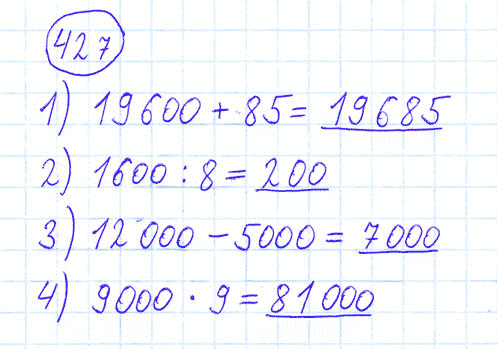 427
1) 19600 + 85 = 19685
2) 1600 : 8 = 200
3) 12 000 - 5000 = 7000
4) 9000 · 9 = 81000